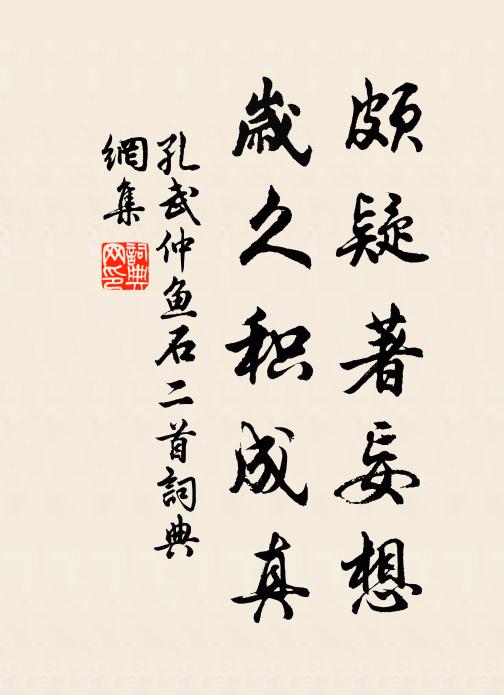 颇疑著妄想
歲久积成真
孔武仲鱼石二首詞典
網集
詞典
网印